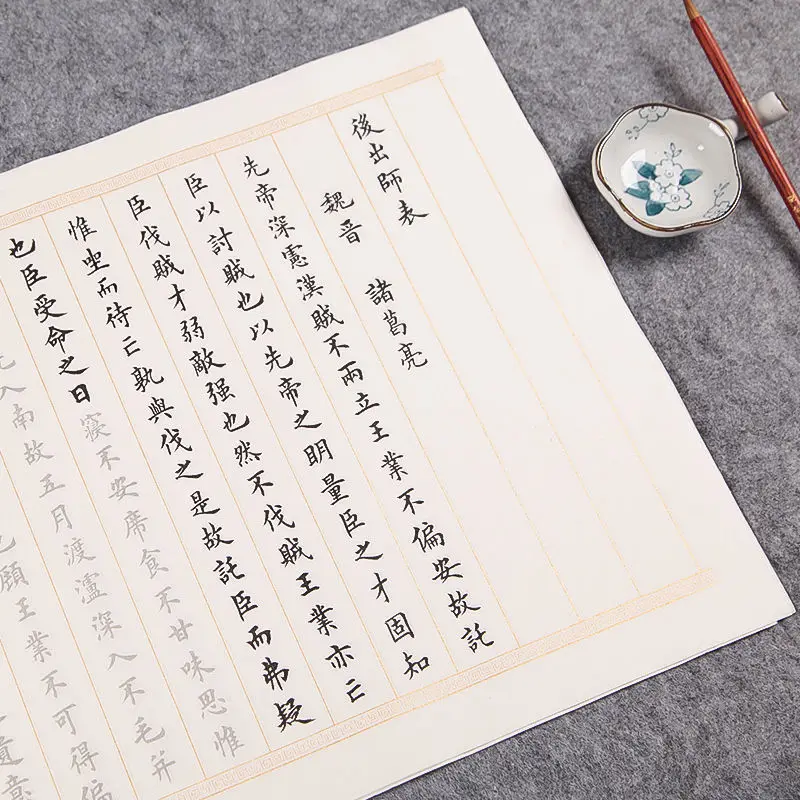 後出師表
魏晋 諸葛亮
先帝深慮漢賊不兩立王業不偏安故託
臣以討賊也以先帝之明量臣之才固知
臣伐賊才弱敵强也然不伐賊王業亦亡
惟坐而待亡孰與伐之是故託臣而弗疑
也臣受命之日寢不安席食不甘味思惟
入南故五月渡瀘深入不毛并
顧王業不可得偏
遺意